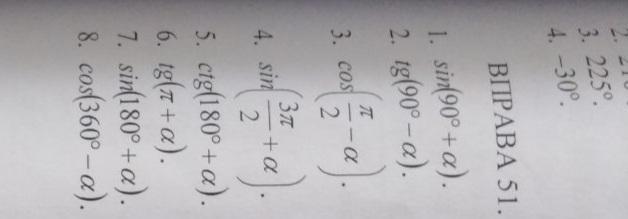 3. 225°.
4. –30°.
ВПРАВА 51.
1. sin(90° + α).
2. tg(90° – α).
3. cos(π/2 – α).
4. sin(3π/2 + α).
5. ctg(180° + α).
6. tg(π + α).
7. sin(180° + α).
8. cos(360° – α).